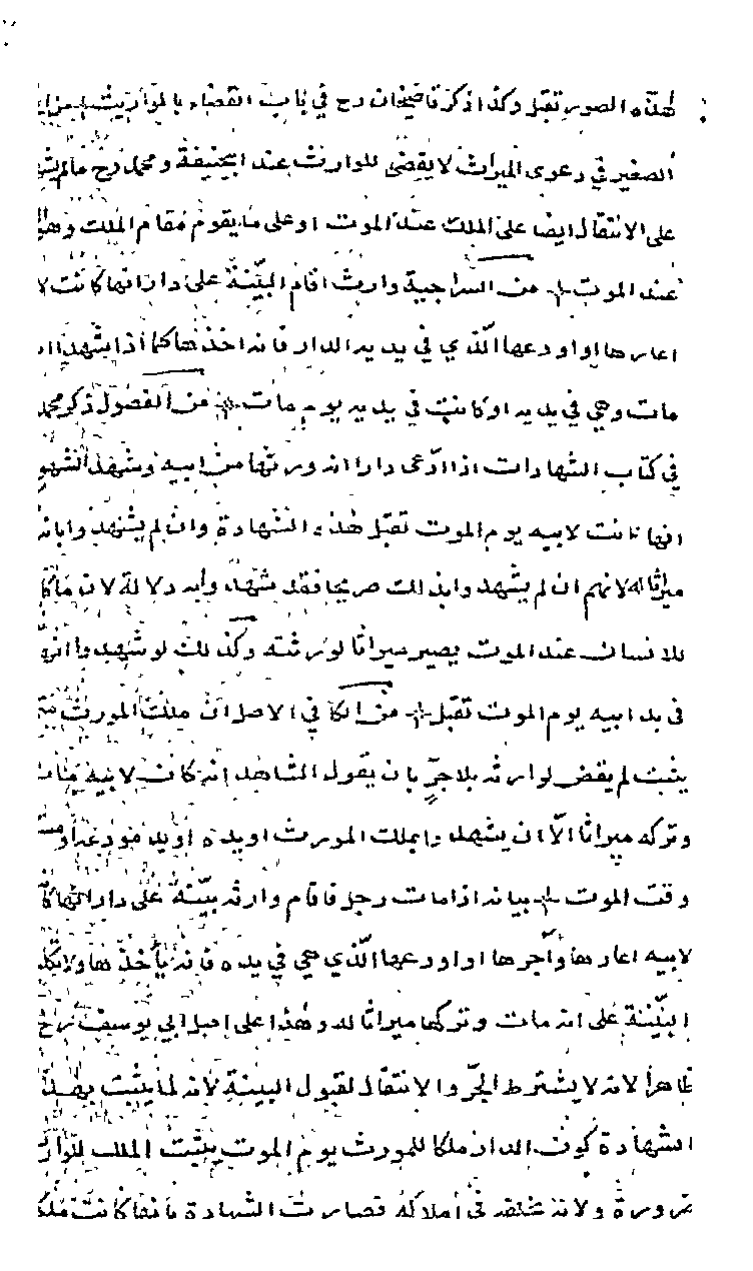 هذه الصور تقبل وكذا ذكر قاضيخان رح في باب القضاء بالمواريث
الصغير في دعوى الميراث لا يقضى للوارث عند ابيحنيفة ومحمد رح مالم
على الانتقال ايضا على الملك عند الموت او على ما يقوم مقام الملك وهو
عند الموت من السراجية وارث اقام البينة على دار انها كانت
اعارها او اودعها الذي في يديه الدار فانه اخذها كما اذا شهدوا
مات وهي في يديه او كانت في يديه يوم مات من الفصول ذكر محمد
في كتاب الشهادات اذا ادعى دارا انه ورثها من ابيه وشهد الشهود
انها كانت لابيه يوم الموت تقبل هذه الشهادة وان لم يشهدوا بانه
ميراثا له لانهم ان لم يشهدوا بذلك صريحا فقد شهدوا به دلالة لان ما كا
للانسان عند الموت يصير ميراثا لورثته وكذلك لو شهدوا انه
في يد ابيه يوم الموت تقبل من الكافي الاصل ان ملك المورث متى
يثبت لم يقض لوارثه بلا جر بان يقول الشاهد انه كان لابيه مات
وتركه ميراثا الا ان يشهدوا بملك المورث او يده او يد مودعه او
وقت الموت بيانه اذا مات رجل فاقام وارثه بينة على دار انها كا
لابيه اعارها وآجرها او اودعها الذي هي في يده فانه يأخذها ولا يكلف
البينة على انه مات وتركها ميراثا له وهذا على اصل ابي يوسف رح
ظاهر لانه لا يشترط الجر والانتقال لقبول البينة لانه لما يثبت بهذه
الشهادة كون الدار ملكا للمورث يوم الموت يثبت الملك للوارث
ضرورة ولانه خلفه في املاكه فصارت الشهادة بانها كانت ملكا